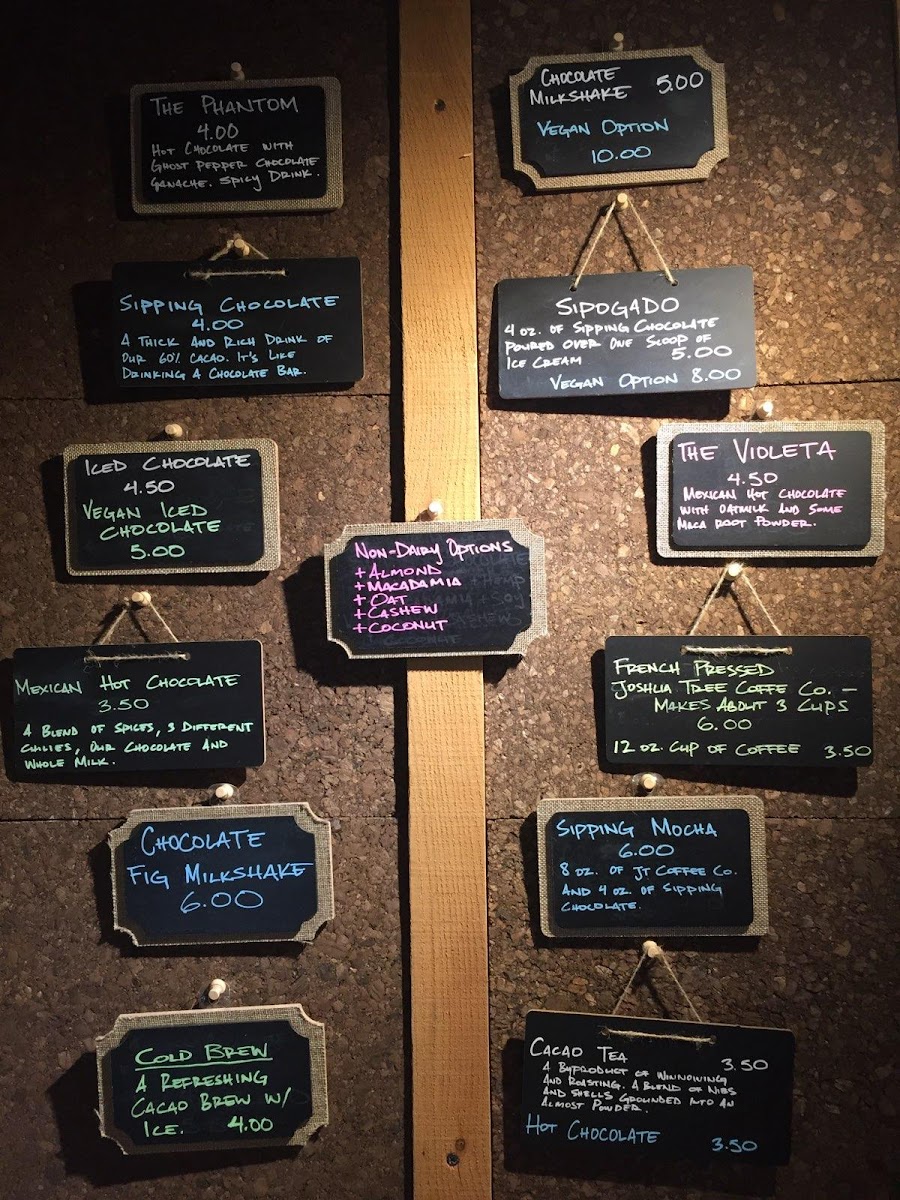 THE PHANTOM
4.00
HOT CHOCOLATE WITH
GHOST PEPPER CHOCOLATE
GANACHE. SPICY DRINK.
SIPPING CHOCOLATE
4.00
A THICK AND RICH DRINK OF
OUR 60% CACAO. IT'S LIKE
DRINKING A CHOCOLATE BAR.
ICED CHOCOLATE
4.50
VEGAN ICED
CHOCOLATE
5.00
MEXICAN HOT CHOCOLATE
3.50
A BLEND OF SPICES, 3 DIFFERENT
CHILIES, OUR CHOCOLATE AND
WHOLE MILK.
CHOCOLATE
FIG MILKSHAKE
6.00
COLD BREW
A REFRESHING
CACAO BREW W/
ICE. 4.00
NON-DAIRY OPTIONS
+ALMOND
+MACADAMIA
+OAT
+CASHEW
+COCONUT
CHOCOLATE
MILKSHAKE 5.00
VEGAN OPTION
10.00
SIPOGADO
4 OZ. OF SIPPING CHOCOLATE
POURED OVER ONE SCOOP OF
ICE CREAM 5.00
VEGAN OPTION 8.00
THE VIOLETA
4.50
MEXICAN HOT CHOCOLATE
WITH OATMILK AND SOME
MACA ROOT POWDER.
FRENCH PRESSED
JOSHUA TREE COFFE CO. –
MAKES ABOUT 3 CUPS
6.00
12 OZ. CUP OF COFFEE 3.50
SIPPING MOCHA
6.00
8 OZ. OF JT COFFEE CO.
AND 4 OZ. OF SIPPING
CHOCOLATE.
CACAO TEA 3.50
A BYPRODUCT OF WINNOWING
AND ROASTING. A BLEND OF NIBS
AND SHELLS GROUNDED INTO AN
ALMOST POWDER.
HOT CHOCOLATE 3.50